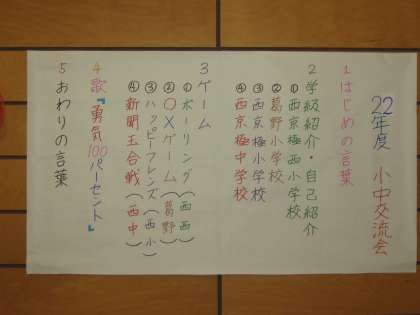 22年度 小中交流会
1はじめの言葉
2学級紹介・自己紹介
①西京極西小学校
②葛野小学校
③西京極小学校
④西京極中学校
3ゲーム
①ボーリング(西西)
②〇×ゲーム(葛野)
③ハッピーフレンズ(西小)
④新聞玉合戦(西中)
4歌『勇気100パーセント』
5おわりの言葉